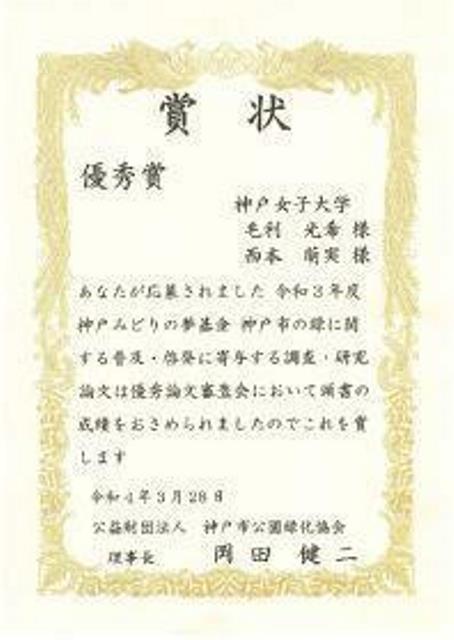 賞 状
優秀賞
神戸女子大学
毛利 光希 様
西本 萌実 様
あなたが応募されました 令和3年度
神戸みどりの夢基金 神戸市の緑に関
する普及・啓発に寄与する調査・研究
論文は優秀論文審査会において頭書の
成績をおさめられましたのでこれを賞
します
令和4年3月28日
公益財団法人 神戸市公園緑化協会
理事長 岡田 健二